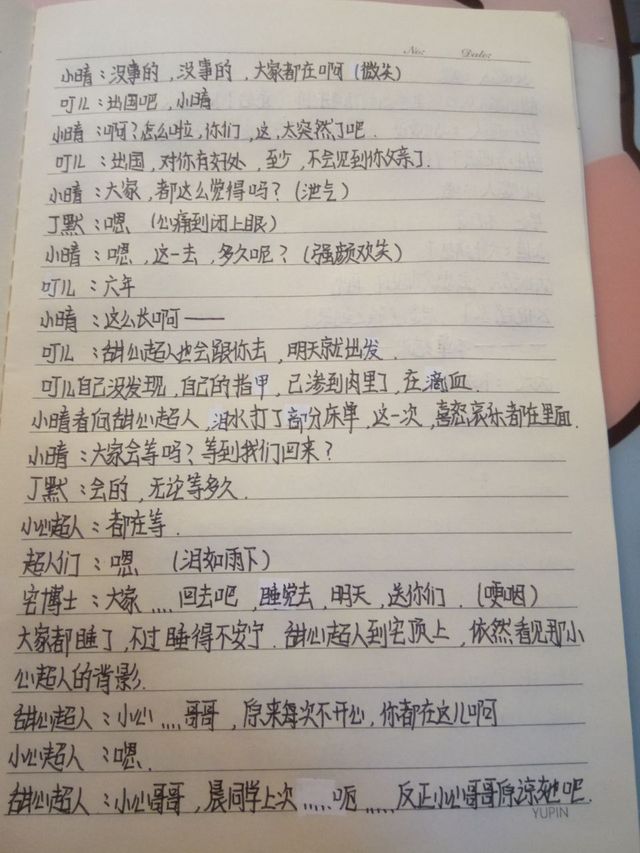 No:    Date:
小晴：没事的，没事的，大家都在啊（微笑）
叮儿：出国吧，小晴
小晴：啊？怎么啦，你们，这，太突然了吧．
叮儿：出国，对你有好处，至少，不会见到你父亲了．
小晴：大家，都这么觉得吗？（泄气）
丁默：嗯 （心痛到闭上眼）
小晴：嗯，这一去，多久呢？（强颜欢笑）
叮儿：六年
小晴：这么长啊——
叮儿：甜心超人也会跟你去，明天就出发．
叮儿自己没发现，自己的指甲，已渗到肉里了，在滴血．
小晴看向甜心超人，泪水打了部分床单，这一次，喜怒哀乐都在里面．
小晴：大家会等吗？等到我们回来？
丁默：会的，无论等多久．
小心超人：都在等．
超人们：嗯 （泪如雨下）
宅博士：大家....回去吧，睡觉去，明天，送你们．（哽咽）
大家都睡了，不过睡得不安宁．甜心超人到宅顶上，依然看见那小
心超人的背影．
甜心超人：小心....哥哥，原来每次不开心，你都在这儿啊
小心超人：嗯．
甜心超人：小心哥哥，晨同学上次.....呃.....反正小心哥哥原谅她吧．
YUPIN